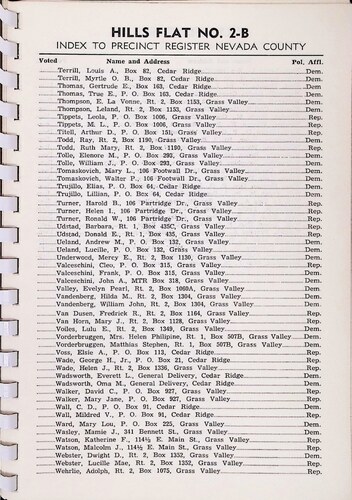 HILLS FLAT NO. 2-B
INDEX TO PRECINCT REGISTER NEVADA COUNTY
Voted Name and Address Pol. Affl.
Terrill, Louis A., Box 82, Cedar Ridge Dem.
Terrill, Myrtle O. B., Box 82, Cedar Ridge Dem.
Thomas, Gertrude E., Box 163, Cedar Ridge Dem.
Thomas, True E., P. O. Box 163, Cedar Ridge Dem.
Thompson, E. La Vonne, Rt. 2, Box 1153, Grass Valley Dem.
Thompson, Leland, Rt. 2, Box 1153, Grass Valley Dem.
Tippets, Leola, P. O. Box 1006, Grass Valley Rep.
Tippets, M. L., P. O. Box 1006, Grass Valley Rep.
Titell, Arthur D., P. O. Box 151, Grass Valley Rep.
Todd, Ray, Rt. 2, Box 1190, Grass Valley Dem.
Todd, Ruth Mary, Rt. 2, Box 1190, Grass Valley Rep.
Tolle, Elenore M., P. O. Box 293, Grass Valley Dem.
Tolle, William J., P. O. Box 293, Grass Valley Dem.
Tomaskovich, Mary L., 106 Footwall Dr., Grass Valley Dem.
Tomaskovich, Walter P., 106 Footwall Dr., Grass Valley Dem.
Trujillo, Elias, P. O. Box 64, Cedar Ridge Dem.
Trujillo, Lillian, P. O. Box 64, Cedar Ridge Dem.
Turner, Harold B., 106 Partridge Dr., Grass Valley Rep.
Turner, Helen I., 106 Partridge Dr., Grass Valley Rep.
Turner, Ronald W., 106 Partridge Dr., Grass Valley Rep.
Udstad, Barbara, Rt. 1, Box 435C, Grass Valley Rep.
Udstad, Donald E., Rt. 1, Box 435, Grass Valley Rep.
Ueland, Andrew M., P. O. Box 132, Grass Valley Dem.
Ueland, Lucille, P. O. Box 132, Grass Valley Dem.
Underwood, Mercy E., Rt. 2, Box 1130, Grass Valley Dem.
Valceschini, Cleo, P. O. Box 315, Grass Valley Rep.
Valceschini, Frank, P. O. Box 315, Grass Valley Dem.
Valceschini, John A., MTR Box 318, Grass Valley Dem.
Valley, Evelyn Pearl, Rt. 2, Box 1060A, Grass Valley Dem.
Vandenberg, Hilda M., Rt. 2, Box 1304, Grass Valley Dem.
Vandenberg, William John, Rt. 2, Box 1304, Grass Valley Dem.
Van Dusen, Fredrick R., Rt. 2, Box 1164, Grass Valley Rep.
Van Horn, Mary J., Rt. 2, Box 1128, Grass Valley Rep.
Voiles, Lulu E., Rt. 2, Box 1349, Grass Valley Dem.
Vorderbruggen, Mrs. Helen Philipine, Rt. 1, Box 507B, Grass Valley Dem.
Vorderbruggen, Matthias Stephen, Rt. 1, Box 507B, Grass Valley Dem.
Voss, Elsie A., P. O. Box 113, Cedar Ridge Rep.
Wade, George H., Jr., P. O. Box 21, Cedar Ridge Rep.
Wade, Helen J., Rt. 2, Box 1336, Grass Valley Rep.
Wadsworth, Everett L., General Delivery, Cedar Ridge Dem.
Wadsworth, Oma M., General Delivery, Cedar Ridge Dem.
Walker, David C., P. O. Box 927, Grass Valley Rep.
Walker, Mary Jane, P. O. Box 927, Grass Valley Rep.
Wall, C. D., P. O. Box 91, Cedar Ridge Dem.
Wall, Mildred V., P. O. Box 91, Cedar Ridge Rep.
Ward, Mary Lou, P. O. Box 225, Grass Valley Dem.
Wasley, Mamie J., 341 Bennett St., Grass Valley Dem.
Watson, Katherine F., 114½ E. Main St., Grass Valley Rep.
Watson, Malcolm J., 114½ E. Main St., Grass Valley Rep.
Webster, Dwight D., Rt. 2, Box 1352, Grass Valley Dem.
Webster, Lucille Mae, Rt. 2, Box 1352, Grass Valley Rep.
Wehrlie, Adolph, Rt. 2, Box 1075, Grass Valley Rep.